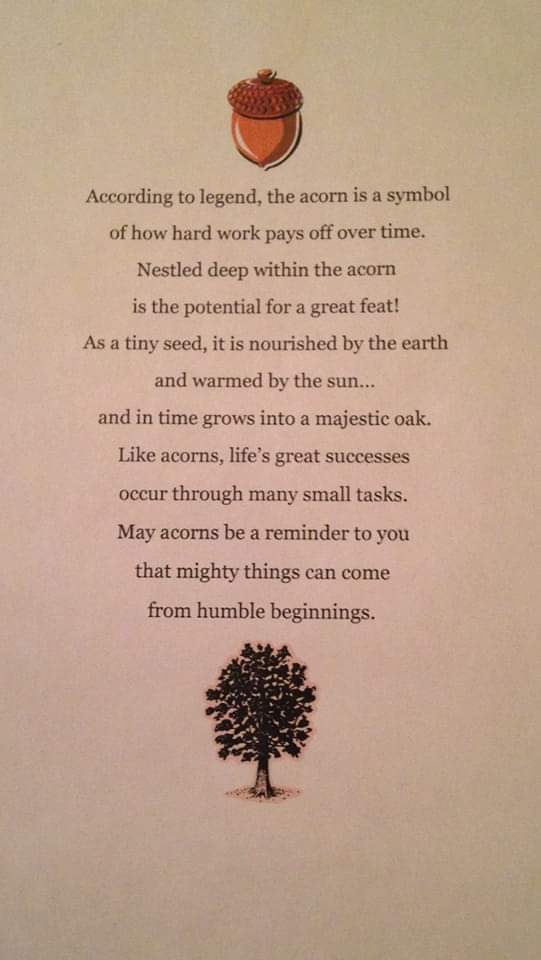 According to legend, the acorn is a symbol
of how hard work pays off over time.
Nestled deep within the acorn
is the potential for a great feat!
As a tiny seed, it is nourished by the earth
and warmed by the sun...
and in time grows into a majestic oak.
Like acorns, life's great successes
occur through many small tasks.
May acorns be a reminder to you
that mighty things can come
from humble beginnings.